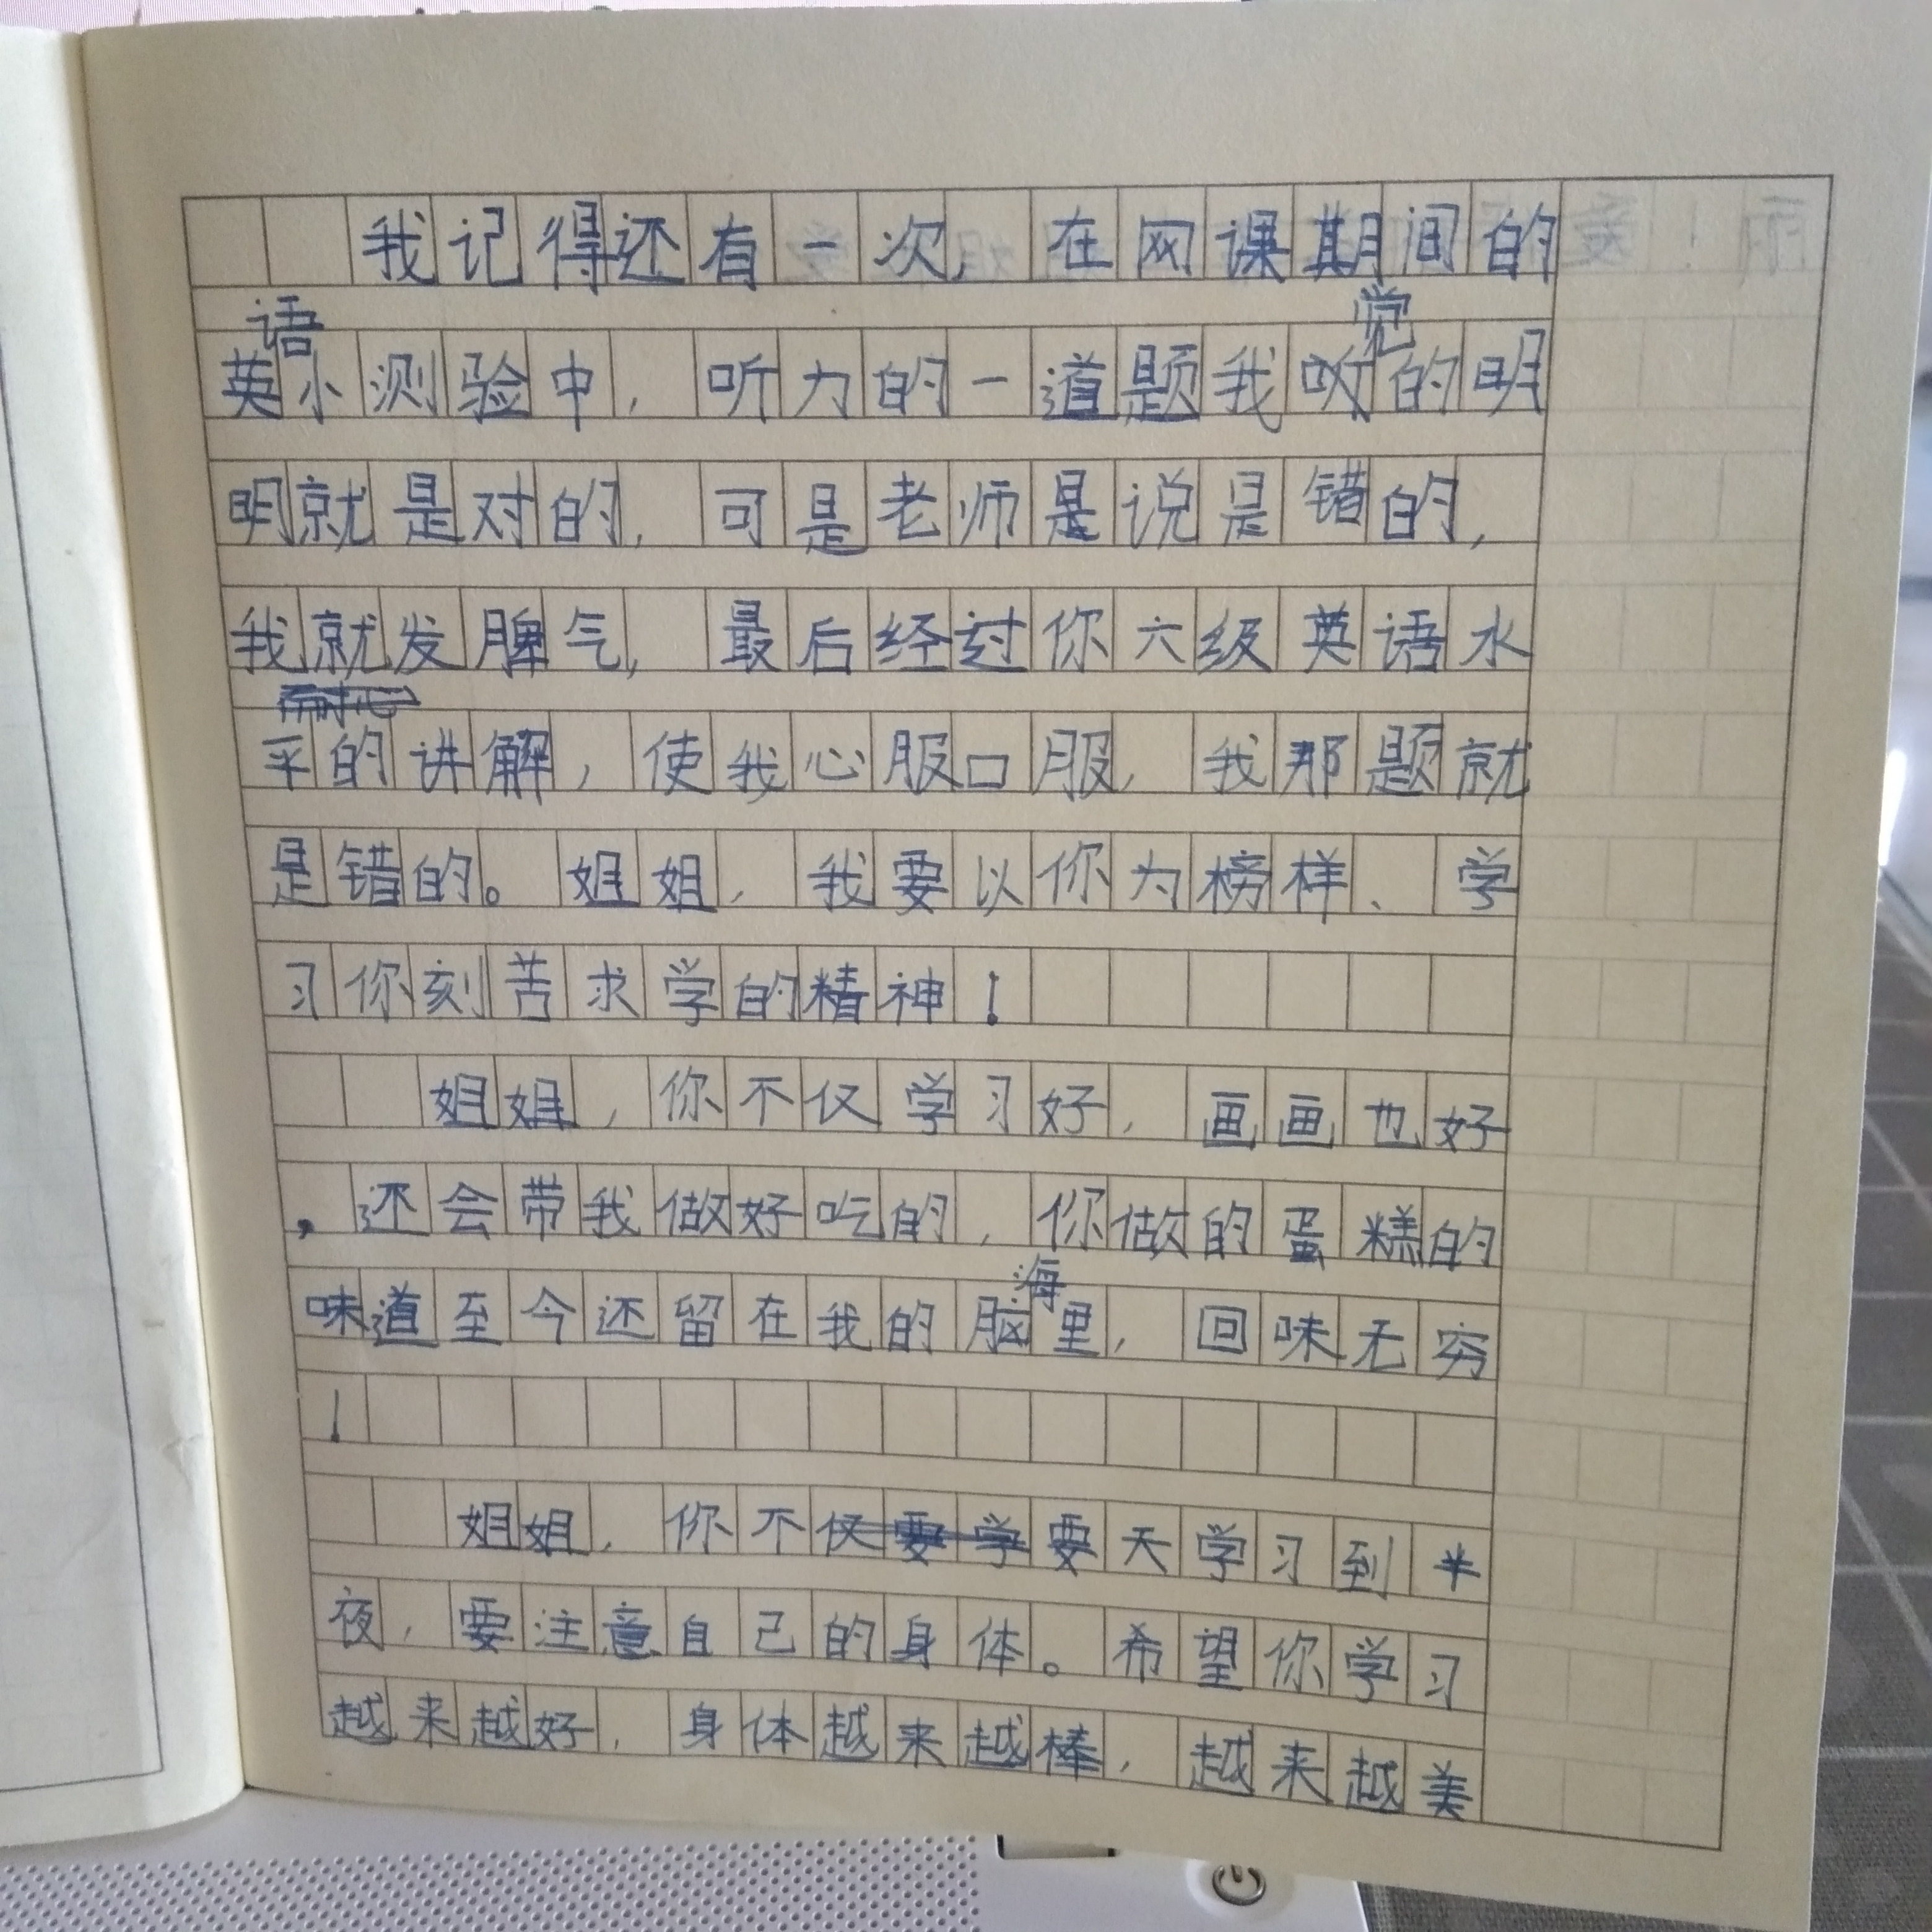 我记得还有一次，在网课期间的
英语小测验中，听力的一道题我听觉的明
明就是对的，可是老师是说是错的，
我就发脾气，最后经过你六级英语水
平的讲解，使我心服口服，我那题就
是错的。姐姐，我要以你为榜样、学
习你刻苦求学的精神！
姐姐，你不仅学习好，画画也好
，还会带我做好吃的，你做的蛋糕的
味道至今还留在我的脑海里，回味无穷
！
姐姐，你不要天学习到半
夜，要注意自己的身体。希望你学习
越来越好，身体越来越棒，越来越美